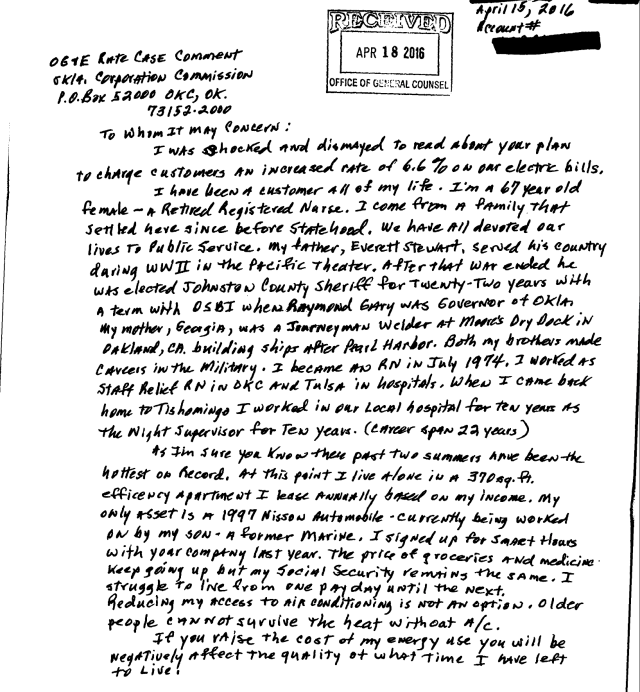 April 15, 2016
Account #
RECEIVED
APR 18 2016
OFFICE OF GENERAL COUNSEL
OG&E RATE CASE COMMENT
OKlA. CorporATion Commission
P.O. Box 52000 OKC, OK.
73152-2000
To Whom It May Concern:
I was shocked and dismayed to read about your plan
to charge customers an increased rate of 6.6% on our electric bills.
I have been a customer all of my life. I'm a 67 year old
female - a Retired Registered Nurse. I come from a family that
settled here since before Statehood. We have all devoted our
lives to Public Service. My father, Everett Stewart, served his country
during WWII in the Pacific Theater. After that war ended he
was elected Johnston County Sheriff for Twenty-Two years with
a term with OSBI when Raymond Gary was Governor of Okla.
My mother, Georgia, was a Journeyman Welder at Moore's Dry Dock in
Oakland, CA. building ships after Pearl Harbor. Both my brothers made
careers in the Military. I became an RN in July 1974. I worked as
Staff Relief RN in OKC and Tulsa in hospitals. When I came back
home to Tishomingo I worked in our Local hospital for ten years as
the Night Supervisor for Ten years. (career span 22 years)
As I'm sure you know these past two summers have been the
hottest on Record. At this point I live alone in a 370 sq. ft.
efficency apartment I lease annually based on my income. My
only asset is a 1997 Nisson Automobile - currently being worked
on by my son - a former Marine. I signed up for Smart Hours
with your company last year. The price of groceries and medicine
keep going up but my Social Security remains the same. I
struggle to live from one pay day until the next.
Reducing my access to air conditioning is not an option. Older
people cannot survive the heat without A/c.
If you raise the cost of my energy use you will be
negatively affect the quality of what time I have left
to live!